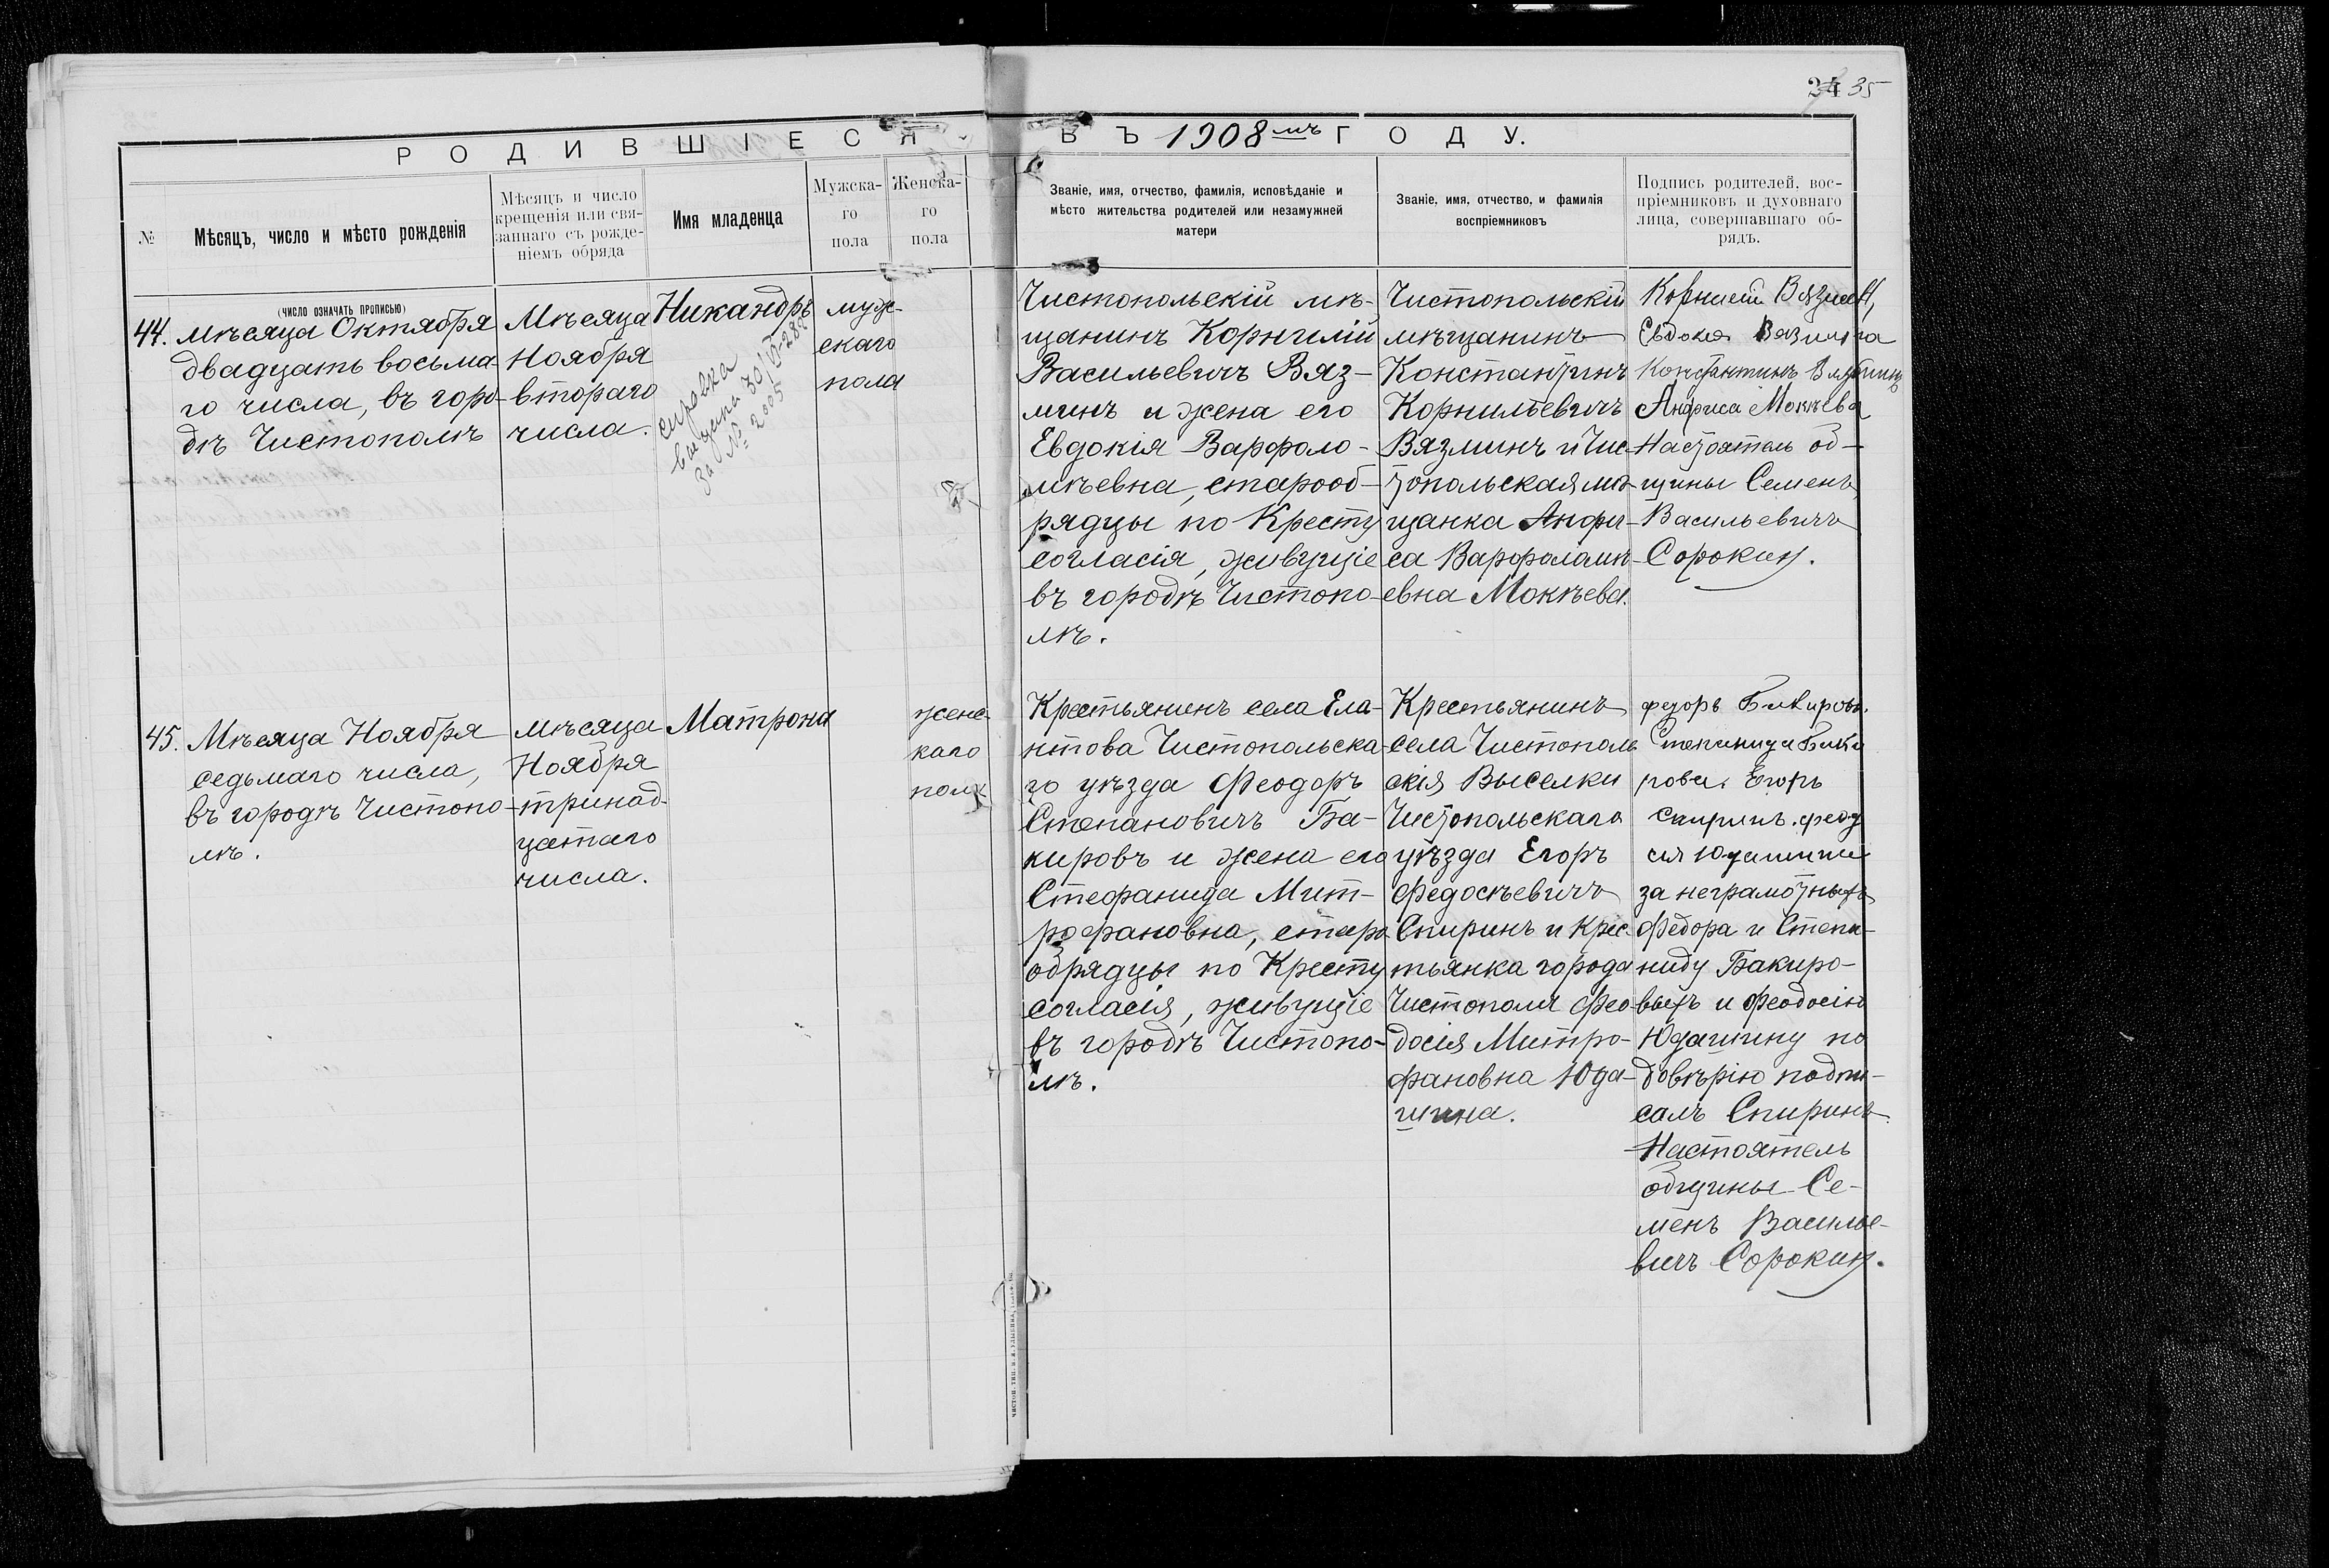 24 35
РОДИВШІЕСЯ ВЪ 1908 мъ ГОДУ.
№
Мѣсяцъ, число и мѣсто рожденія
Мѣсяцъ и число
крещенія или свя-
заннаго съ рожде-
ніемъ обряда
Имя младенца
Мужска-
го
пола
Женска-
го
пола
Званіе, имя, отчество, фамилія, исповѣданіе и
мѣсто жительства родителей или незамужней
матери
Званіе, имя, отчество, и фамилія
воспріемниковъ
Подпись родителей, вос-
пріемниковъ и духовнаго
лица, совершавшаго об-
рядъ.
(число означать прописью)
44.
мѣсяца Октября
двадцать восьма-
го числа, въ горо-
дѣ Чистополѣ
Мѣсяца
Ноября
втораго
числа.
Никандръ
справка
выдана 30/
за № 2005
муж-
скаго
пола
Чистопольскій мѣ-
щанинъ Корнилій
Васильевичъ Вяз-
минъ и жена его
Евдокія Варфоло-
мѣевна, старооб-
рядцы по Кресту
согласія, живущіе
въ городѣ Чистопо-
лѣ.
Чистопольскій
мѣщанинъ
Константинъ
Корнильевичъ
Вязминъ и Чис-
топольская мѣ-
щанка Анфи-
са Варфоламѣ-
евна Мокѣева.
Корнилий
Евдокея
Константинъ
Анфиса Мокѣева
Настоятель об-
щины Семенъ
Васильевичъ
Сорокин.
45.
Мѣсяца Ноября
седьмаго числа,
въ городѣ Чистопо-
лѣ.
мѣсяца
Ноября
тринад-
цатаго
числа.
Матрона
женс-
каго
пола
Крестьянинъ села Ела-
нтова Чистопольска-
го уѣзда Феодоръ
Степановичъ Ба-
кировъ и жена его
Стефанида Мит-
рофановна, старо
обрядцы по Кресту
согласія, живущіе
въ городѣ Чистопо-
лѣ.
Крестьянинъ
села Чистополь
скія Выселки
Чистопольскаго
уѣзда Егоръ
Федосѣевичъ
Спиринъ и Крес-
тьянка города
Чистополя Фео
досія Митро-
фановна Юда-
шина.
федоръ Бакировъ.
Степанида Баки
рова. Егоръ
Спиринъ. феод
сия
за неграмотныхъ
Федора и Степа-
ниду Бакиро-
выхъ и Феодосію
Юдашину по
довѣрію подпи-
салъ Спиринъ.
Настоятель
общины Се-
менъ Василье-
вичъ Сорокин.